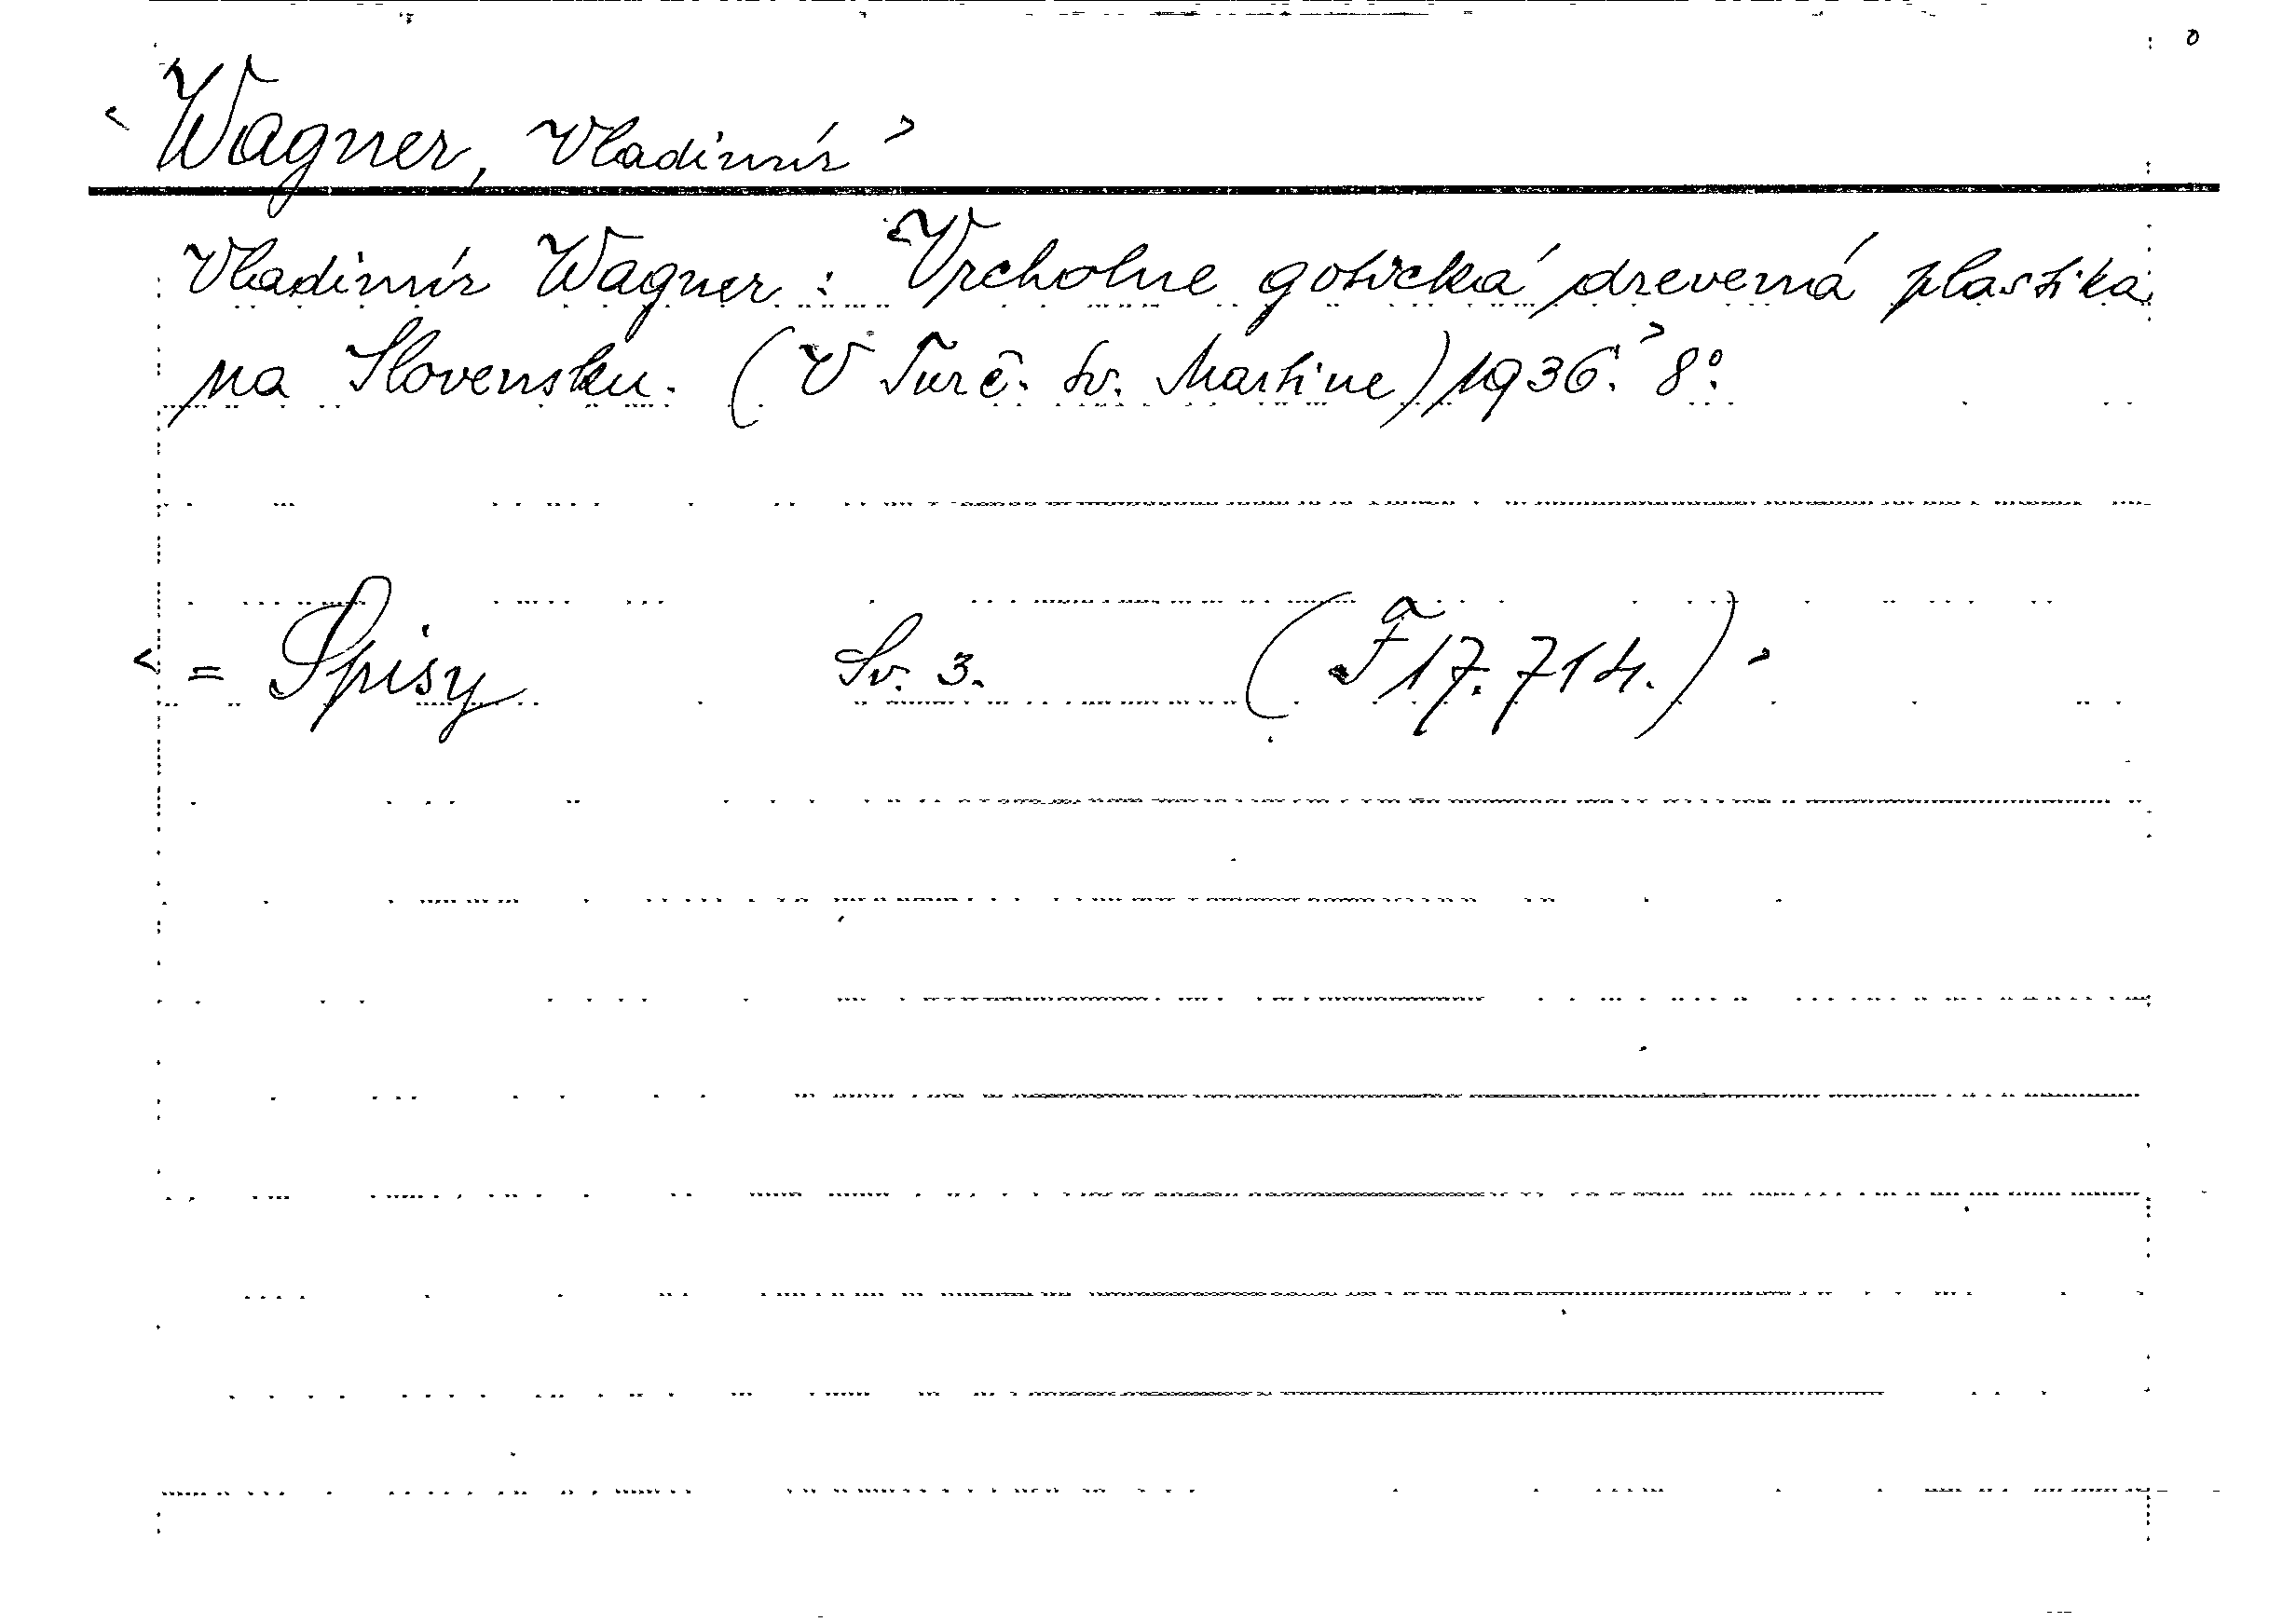 < Wagner, Vladimír >
Vladimír Wagner : <Vrcholne gotická drevená plastika
na Slovensku. (V Turč. Sv. Martine) 1936.> 8°.
< = Spisy Sv. 3. (F 17.714.) >